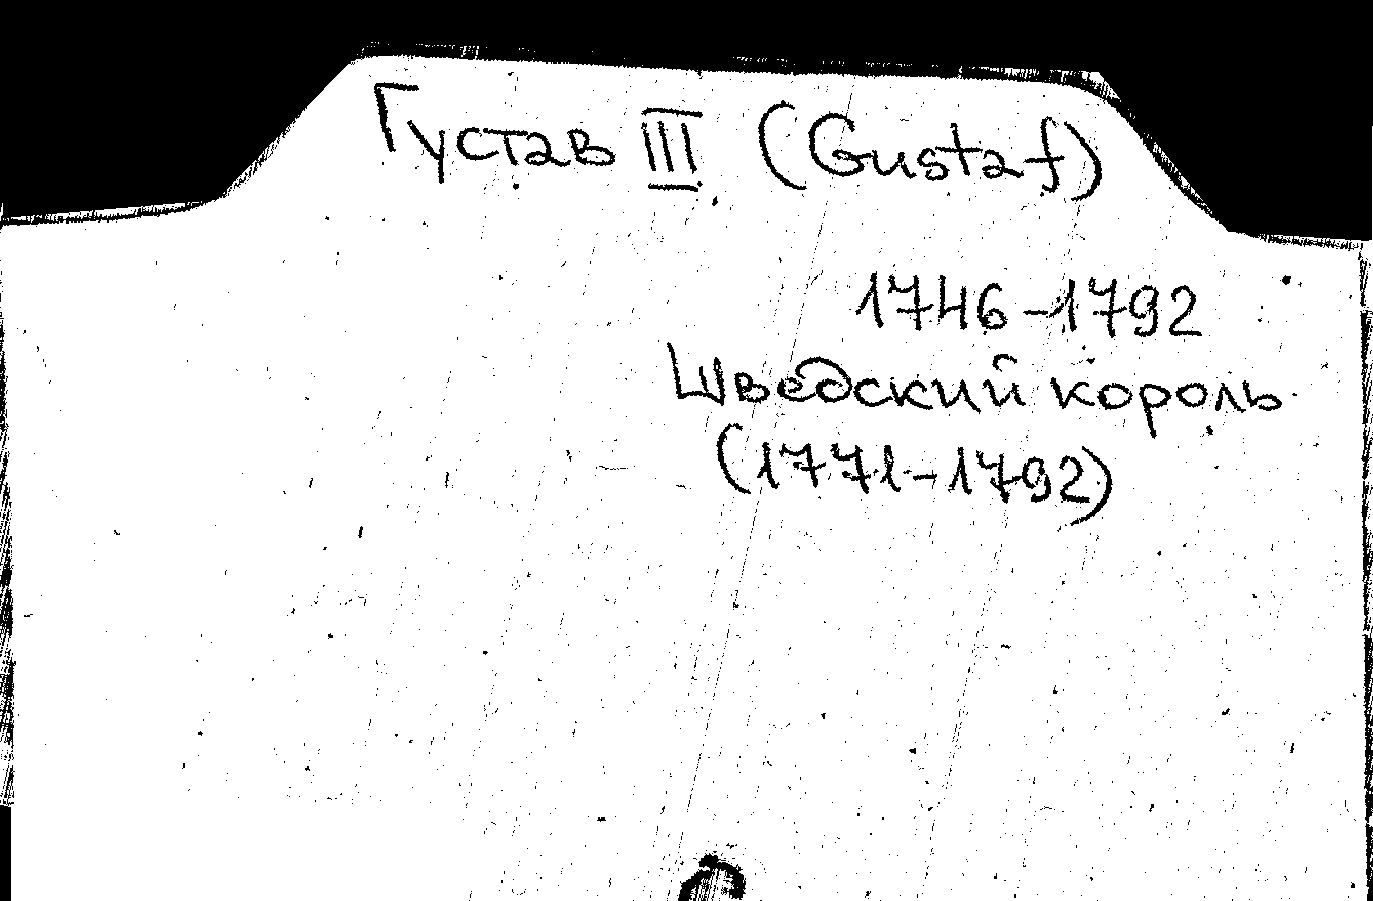 Густав III (Gustaf)
1746-1792
Шведский король
(1771-1792)